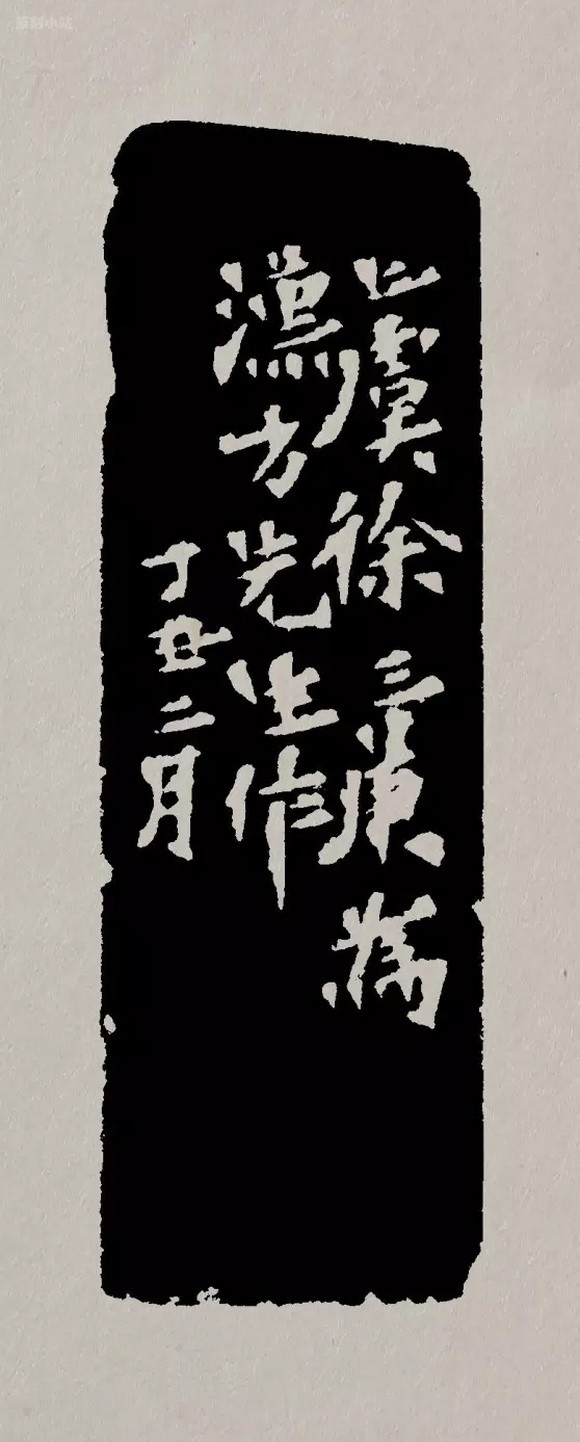 篆刻小站
上虞徐三庚為
漁方先生作
丁丑二月